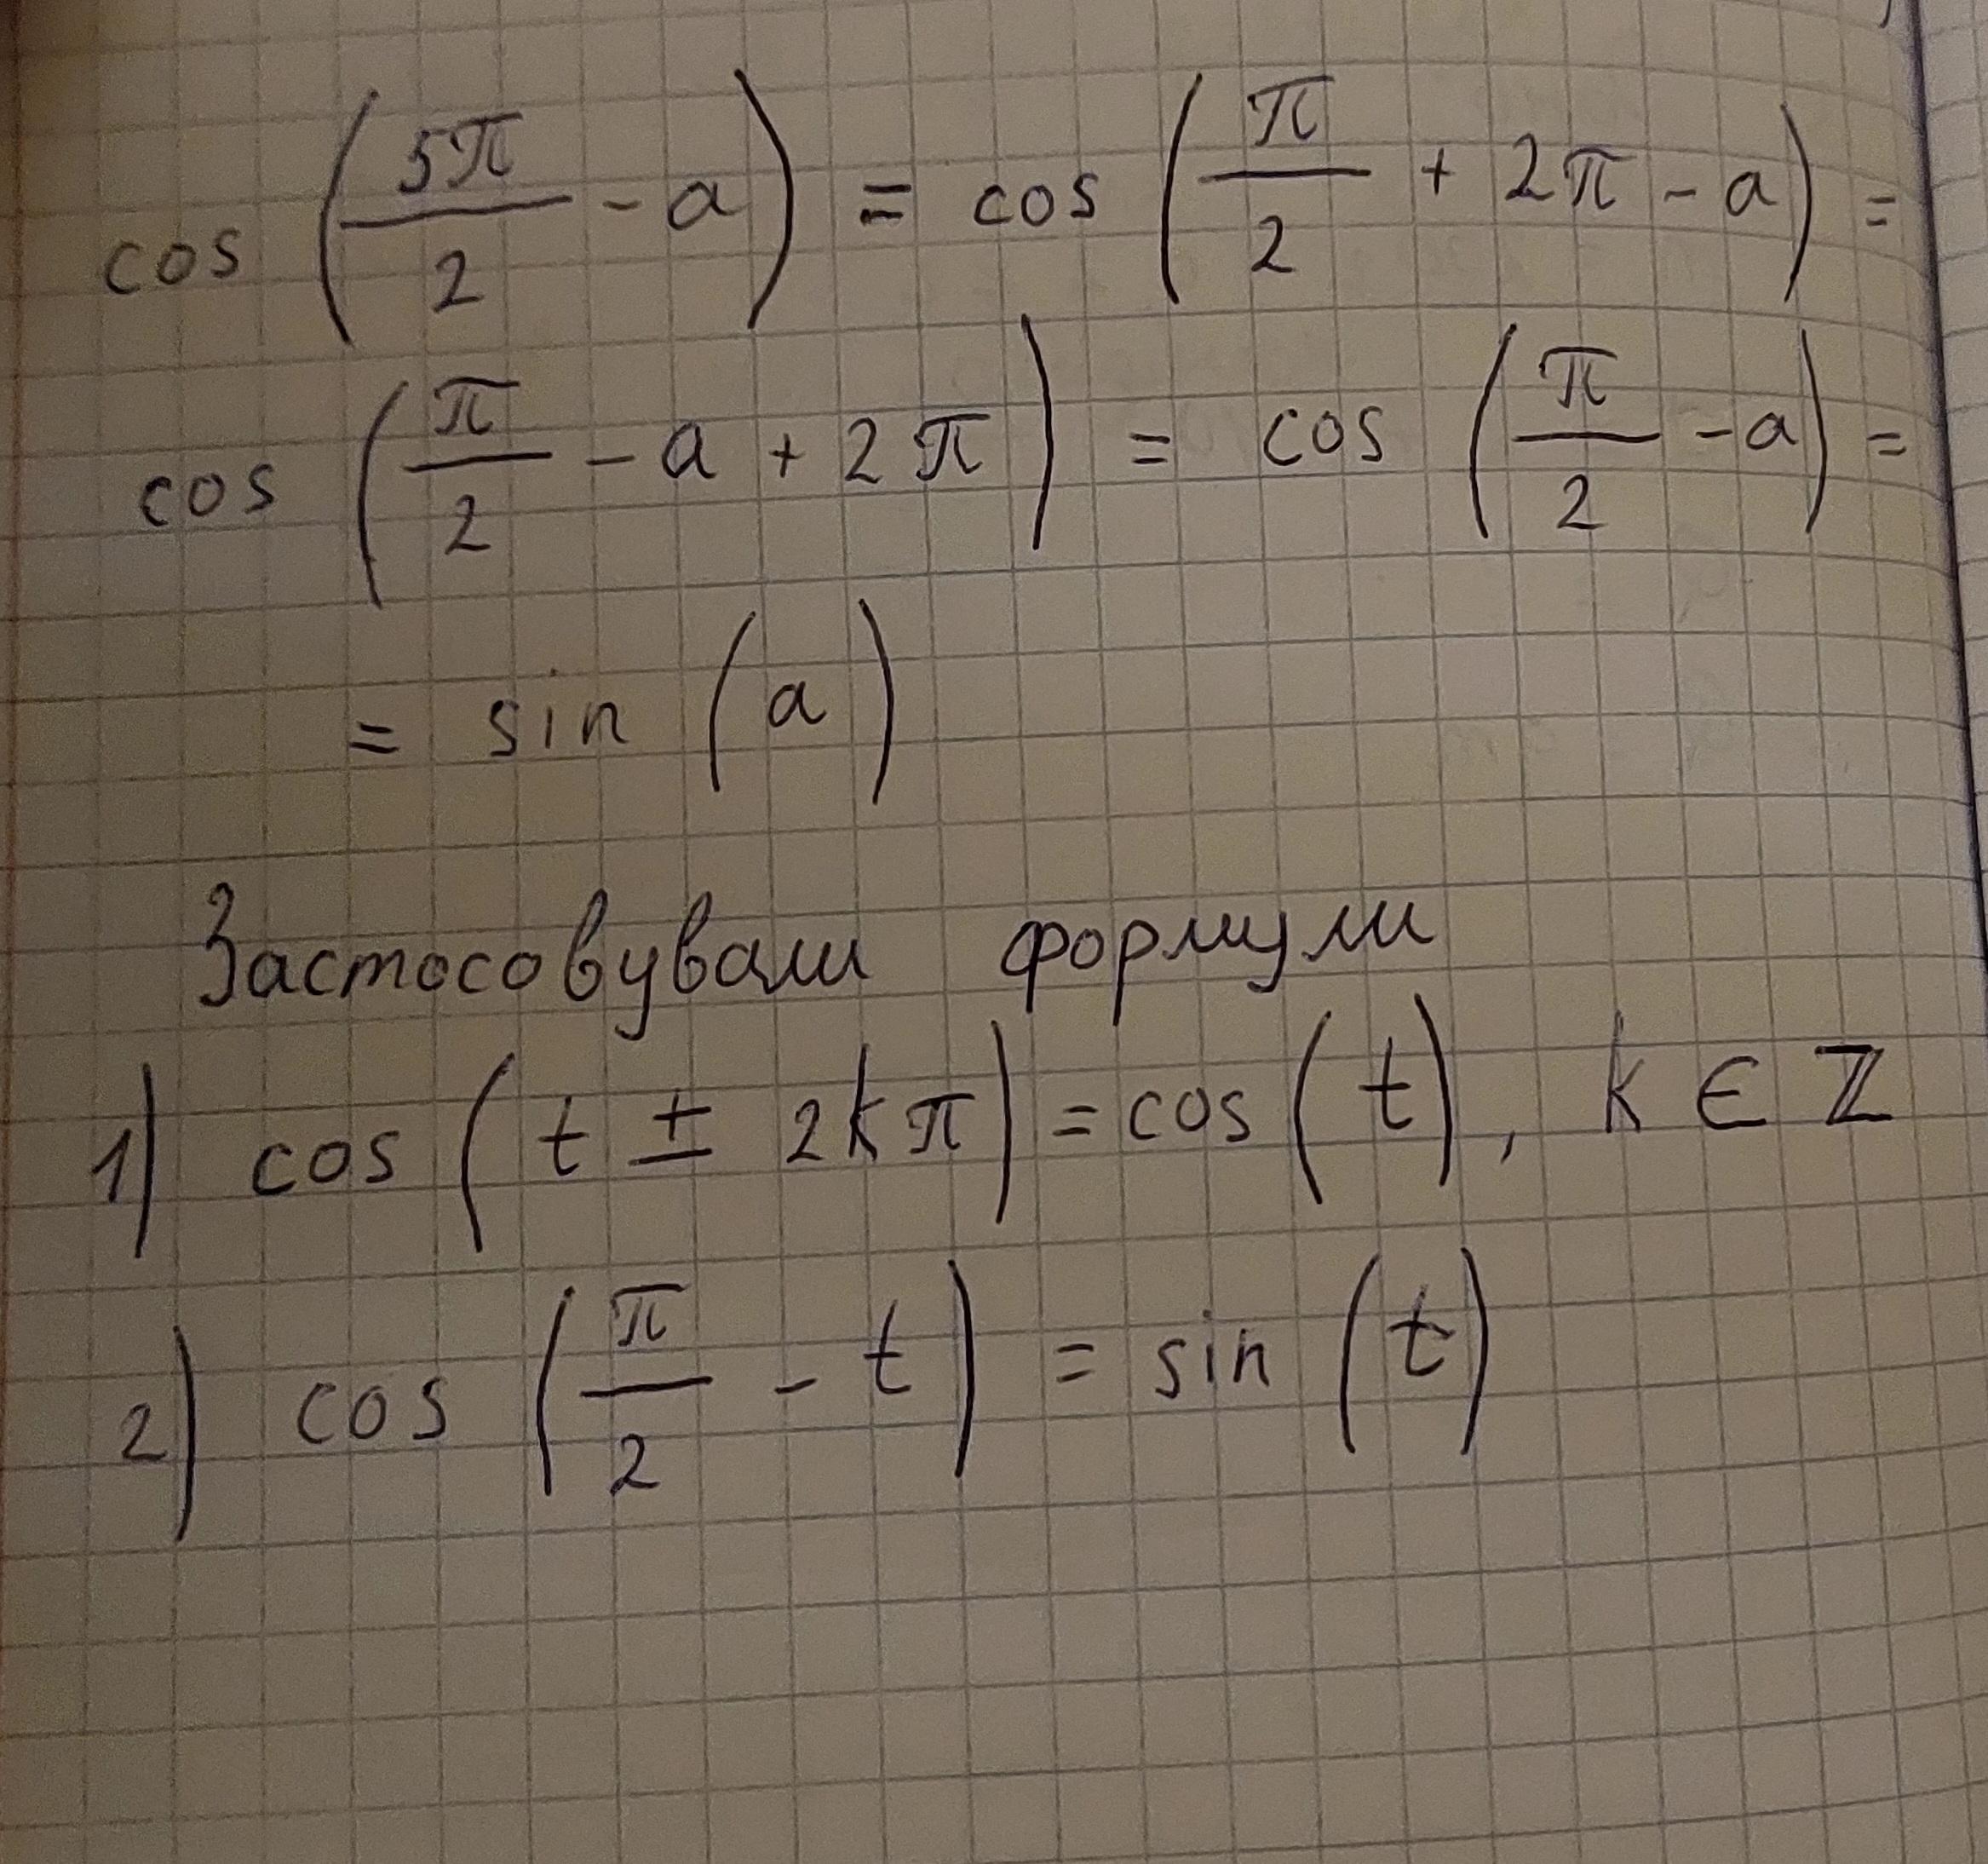 cos (5π/2 - a) = cos (π/2 + 2π - a) =
cos (π/2 - a + 2π) = cos (π/2 - a) =
= sin (a)
Застосовували формули
1) cos (t ± 2kπ) = cos (t), k ∈ ℤ
2) cos (π/2 - t) = sin (t)